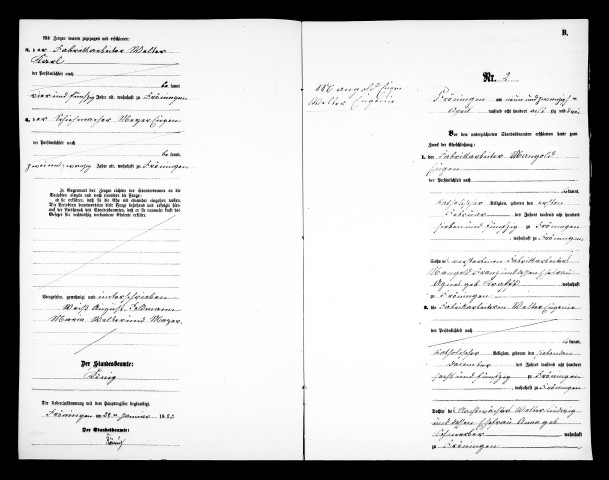 Als Zeugen waren zugezogen und erschienen:
1. der Fabrikarbeiter Welter
Karl
der Persönlichkeit nach
kannt,
vier und fünfzig Jahre alt, wohnhaft zu Fröningen
2. der Meyer Eugen
der Persönlichkeit nach
kannt,
zwei und zwanzig Jahre alt, wohnhaft zu Fröningen
In Gegenwart der Zeugen richtete der Standesbeamte an die
Verlobten einzeln und nach einander die Frage:
ob sie erklären, daß sie die Ehe mit einander eingehen wollen.
Die Verlobten beantworteten diese Frage bejahend und erfolgte hier-
auf der Ausspruch des Standesbeamten, daß er sie nunmehr kraft des
Gesetzes für rechtmäßig verbundene Eheleute erkläre.
Vorgelesen, genehmigt und unterschrieben
August
Maria Welter und Meyer.
Der Standesbeamte:
Die Uebereinstimmung mit dem Hauptregister beglaubigt.
Fröningen am Januar 1883
Der Standesbeamte:
B.
Mangold Eugen
Welter Eugenie
Nr. 2
Fröningen am neun und zwanzigsten
April tausend acht hundert acht zig und drei
Vor dem unterzeichneten Standesbeamten erschienen heute zum
Zweck der Eheschließung:
1. der Fabrikarbeiter Mangold
Eugen
der Persönlichkeit nach
kannt,
katholischer Religion, geboren den ersten
Februar des Jahres tausend acht hundert
sieben und fünfzig zu Fröningen
, wohnhaft zu Fröningen
Sohn des verstorbenen Fabrikarbeiters
Mangold Franz und dessen Ehefrau
Agnes geb.
zu Fröningen
2. die Fabrikarbeiterin Welter Eugenie
der Persönlichkeit nach
kannt,
katholischer Religion, geboren den siebenden
des Jahres tausend acht hundert
sechs und fünfzig zu Fröningen
, wohnhaft zu Fröningen
Tochter des Welter
und dessen Ehefrau Anna geb.
wohnhaft
zu Fröningen